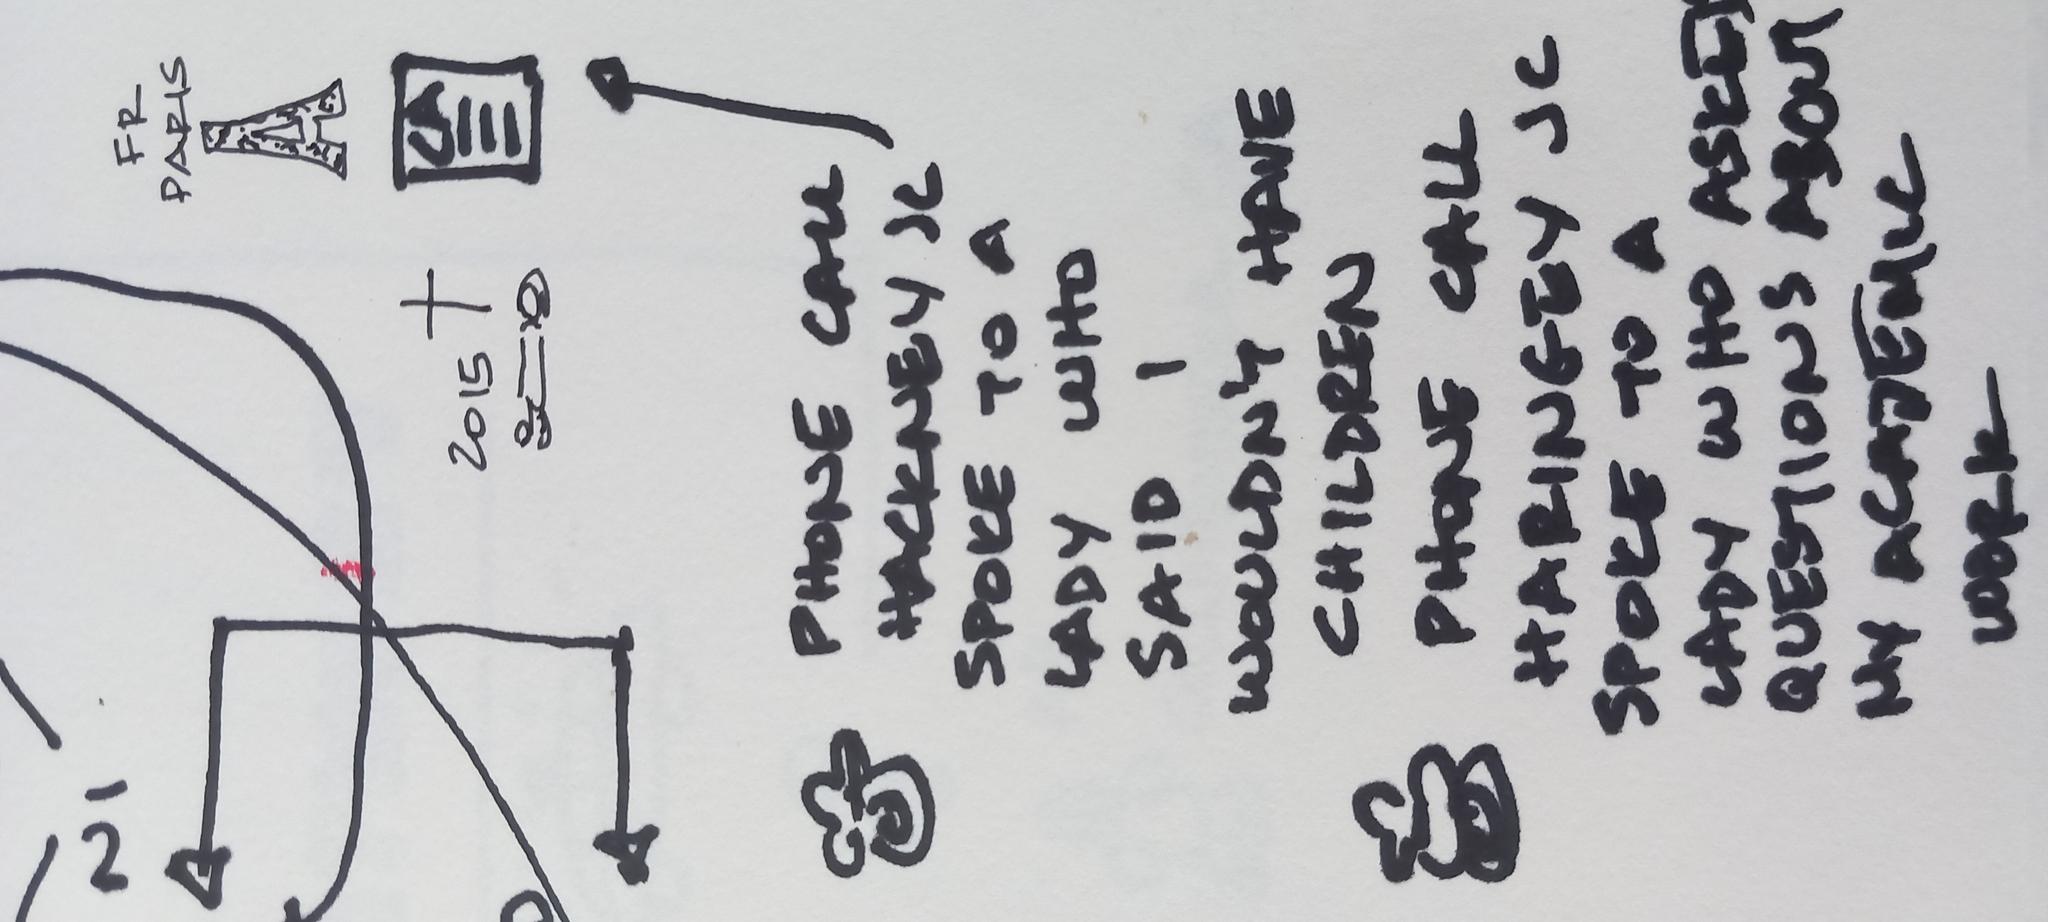 FR
PARIS
2015 +
21
PHONE CALL
HACKNEY JC
SPOKE TO A
LADY WHO
SAID I
WOULDN'T HAVE
CHILDREN
PHONE CALL
HARINGEY JC
SPOKE TO A
LADY WHO ASKED
QUESTIONS ABOUT
MY ACADEMIC
WORK